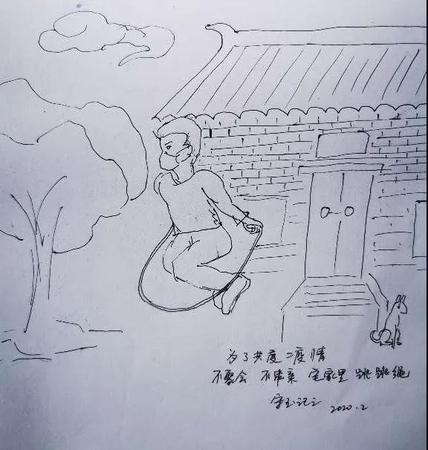 为了共度疫情
不聚会 不串亲 宅家里 跳跳绳
2020.2